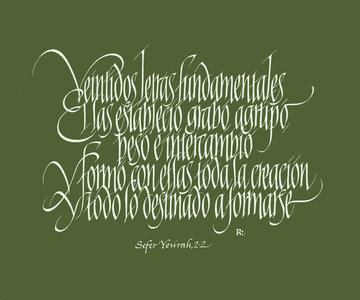 Veintidos letras fundamentales
El las establecio grabo agrupo
peso e intercambio
Y formó con ellas toda la creación
y todo lo destinado a formarse
R.
Sefer Yesirah, 2-2